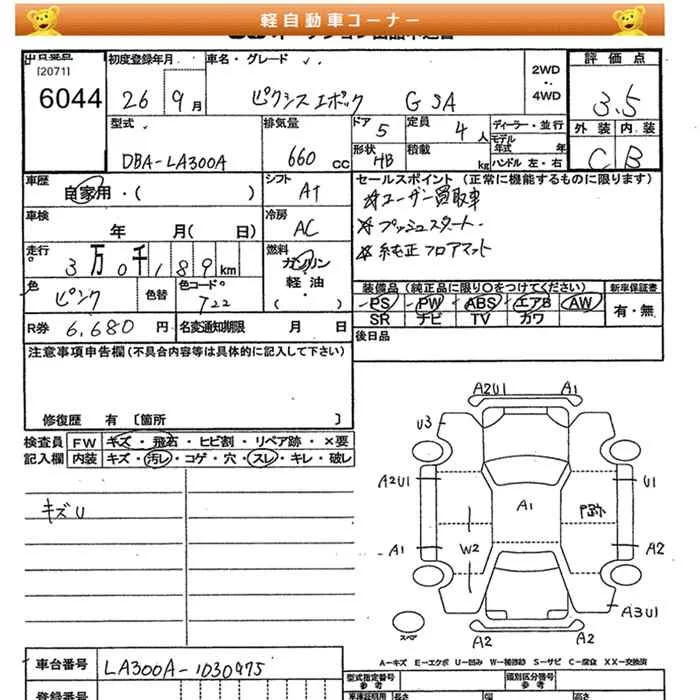 軽自動車コーナー
出品番号
[2071]
6044
初度登録年月
26
9月
車名・グレード
ピクシス エポック G SA
2WD
4WD
評価点
3.5
外装
内装
C
B
型式
DBA-LA300A
排気量
660 CC
ドア
5
定員
4人
形状
HB
積載
kg
ディーラー・並行
モデル年式
年
ハンドル 左・右
車歴
自家用・( )
シフト
AT
車検
年 月( 日)
冷房
AC
走行
3万0千189km
燃料
ガソリン
軽油
( )
色
ピンク
色替
色コード
T22
R券
6,680円
名変通知期限
月 日
セールスポイント (正常に機能するものに限ります)
☆ユーザー買取車
☆プッシュスタート
☆純正フロアマット
装備品 (純正品に限り○をつけてください)
新車保証書
PS PW ABS エアB AW
SR ナビ TV カワ
有・無
後日品
注意事項申告欄(不具合内容等は具体的に記入して下さい)
修復歴 有 〔箇所 〕
検査員
記入欄
FW キズ・飛石・ヒビ割・リペア跡・×要
内装 キズ・汚レ・コゲ・穴・スレ・キレ・破レ
キズU
A2U1
A1
U3
A2U1
U1
A1
W2
A1
A2
A3U1
A2
A2
スペア
A−キズ E−エクボ U−凹み W−補修跡 S−サビ C−腐食 XX−交換済
車台番号
LA300A-1030975
登録番号
型式指定番号
参考
類別区分番号
参考
車検証明用
長さ
幅
高さ